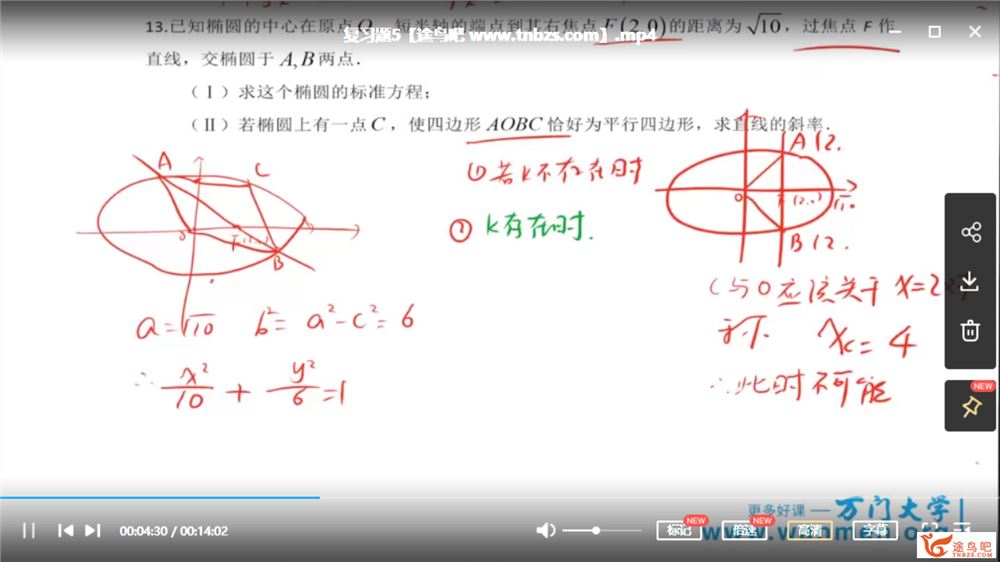 13.已知椭圆的中心在原点O，短半轴的端点到其右焦点F(2,0)的距离为√10，过焦点 F 作
复习题5【途鸟吧 www.tnbzs.com】.mp4
直线，交椭圆于 A,B 两点．
（Ⅰ）求这个椭圆的标准方程；
（Ⅱ）若椭圆上有一点 C，使四边形 AOBC 恰好为平行四边形，求直线的斜率．
A C
① 若k不存在时
A(2.
② k有在时.
O F B
O F (2,0) √10
B(2.
C与O应该关于 x=2对
称 x_C=4
∴此时不可能
a=√10 b²=a²-c²=6
∴ x²/10 + y²/6 =1
更多好课——万门大学
00:04:30 / 00:14:02
标记 NEW
倍速 NEW
高清
字幕 NEW
NEW
途鸟吧
www.tnbzs.com